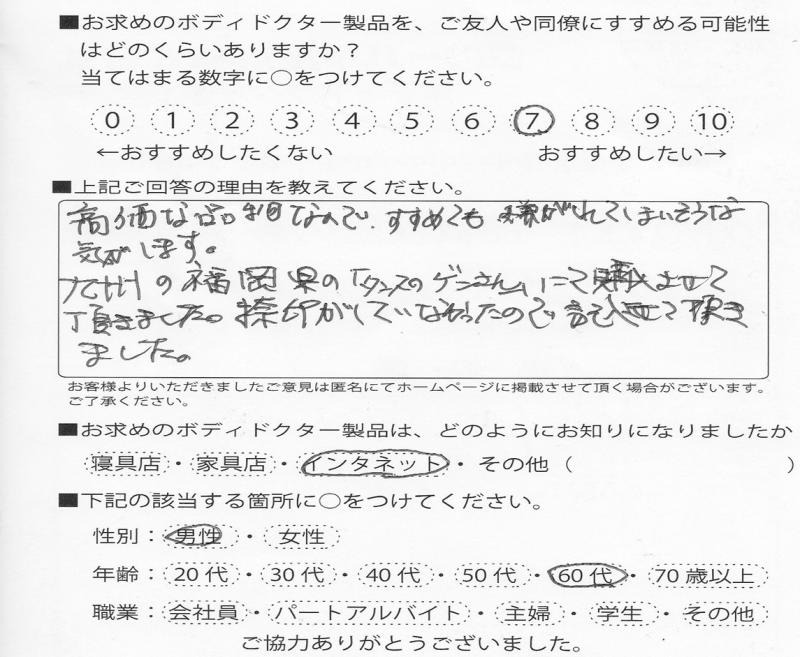 ■お求めのボディドクター製品を、ご友人や同僚にすすめる可能性
はどのくらいありますか？
当てはまる数字に○をつけてください。
0 1 2 3 4 5 6 7 8 9 10
←おすすめしたくない おすすめしたい→
■上記ご回答の理由を教えてください。
高価な品目なので、すすめても嫌がれてしまいそうな
気がします。
九州の福岡県の「タンスのゲンさん」にて購入させて
頂きました。捺印がしていなかったので記入させて頂き
ました。
お客様よりいただきましたご意見は匿名にてホームページに掲載させて頂く場合がございます。
ご了承ください。
■お求めのボディドクター製品は、どのようにお知りになりましたか
寝具店・家具店・インタネット・その他（ ）
■下記の該当する箇所に○をつけてください。
性別：男性・女性
年齢：20代・30代・40代・50代・60代・70歳以上
職業：会社員・パートアルバイト・主婦・学生・その他
ご協力ありがとうございました。